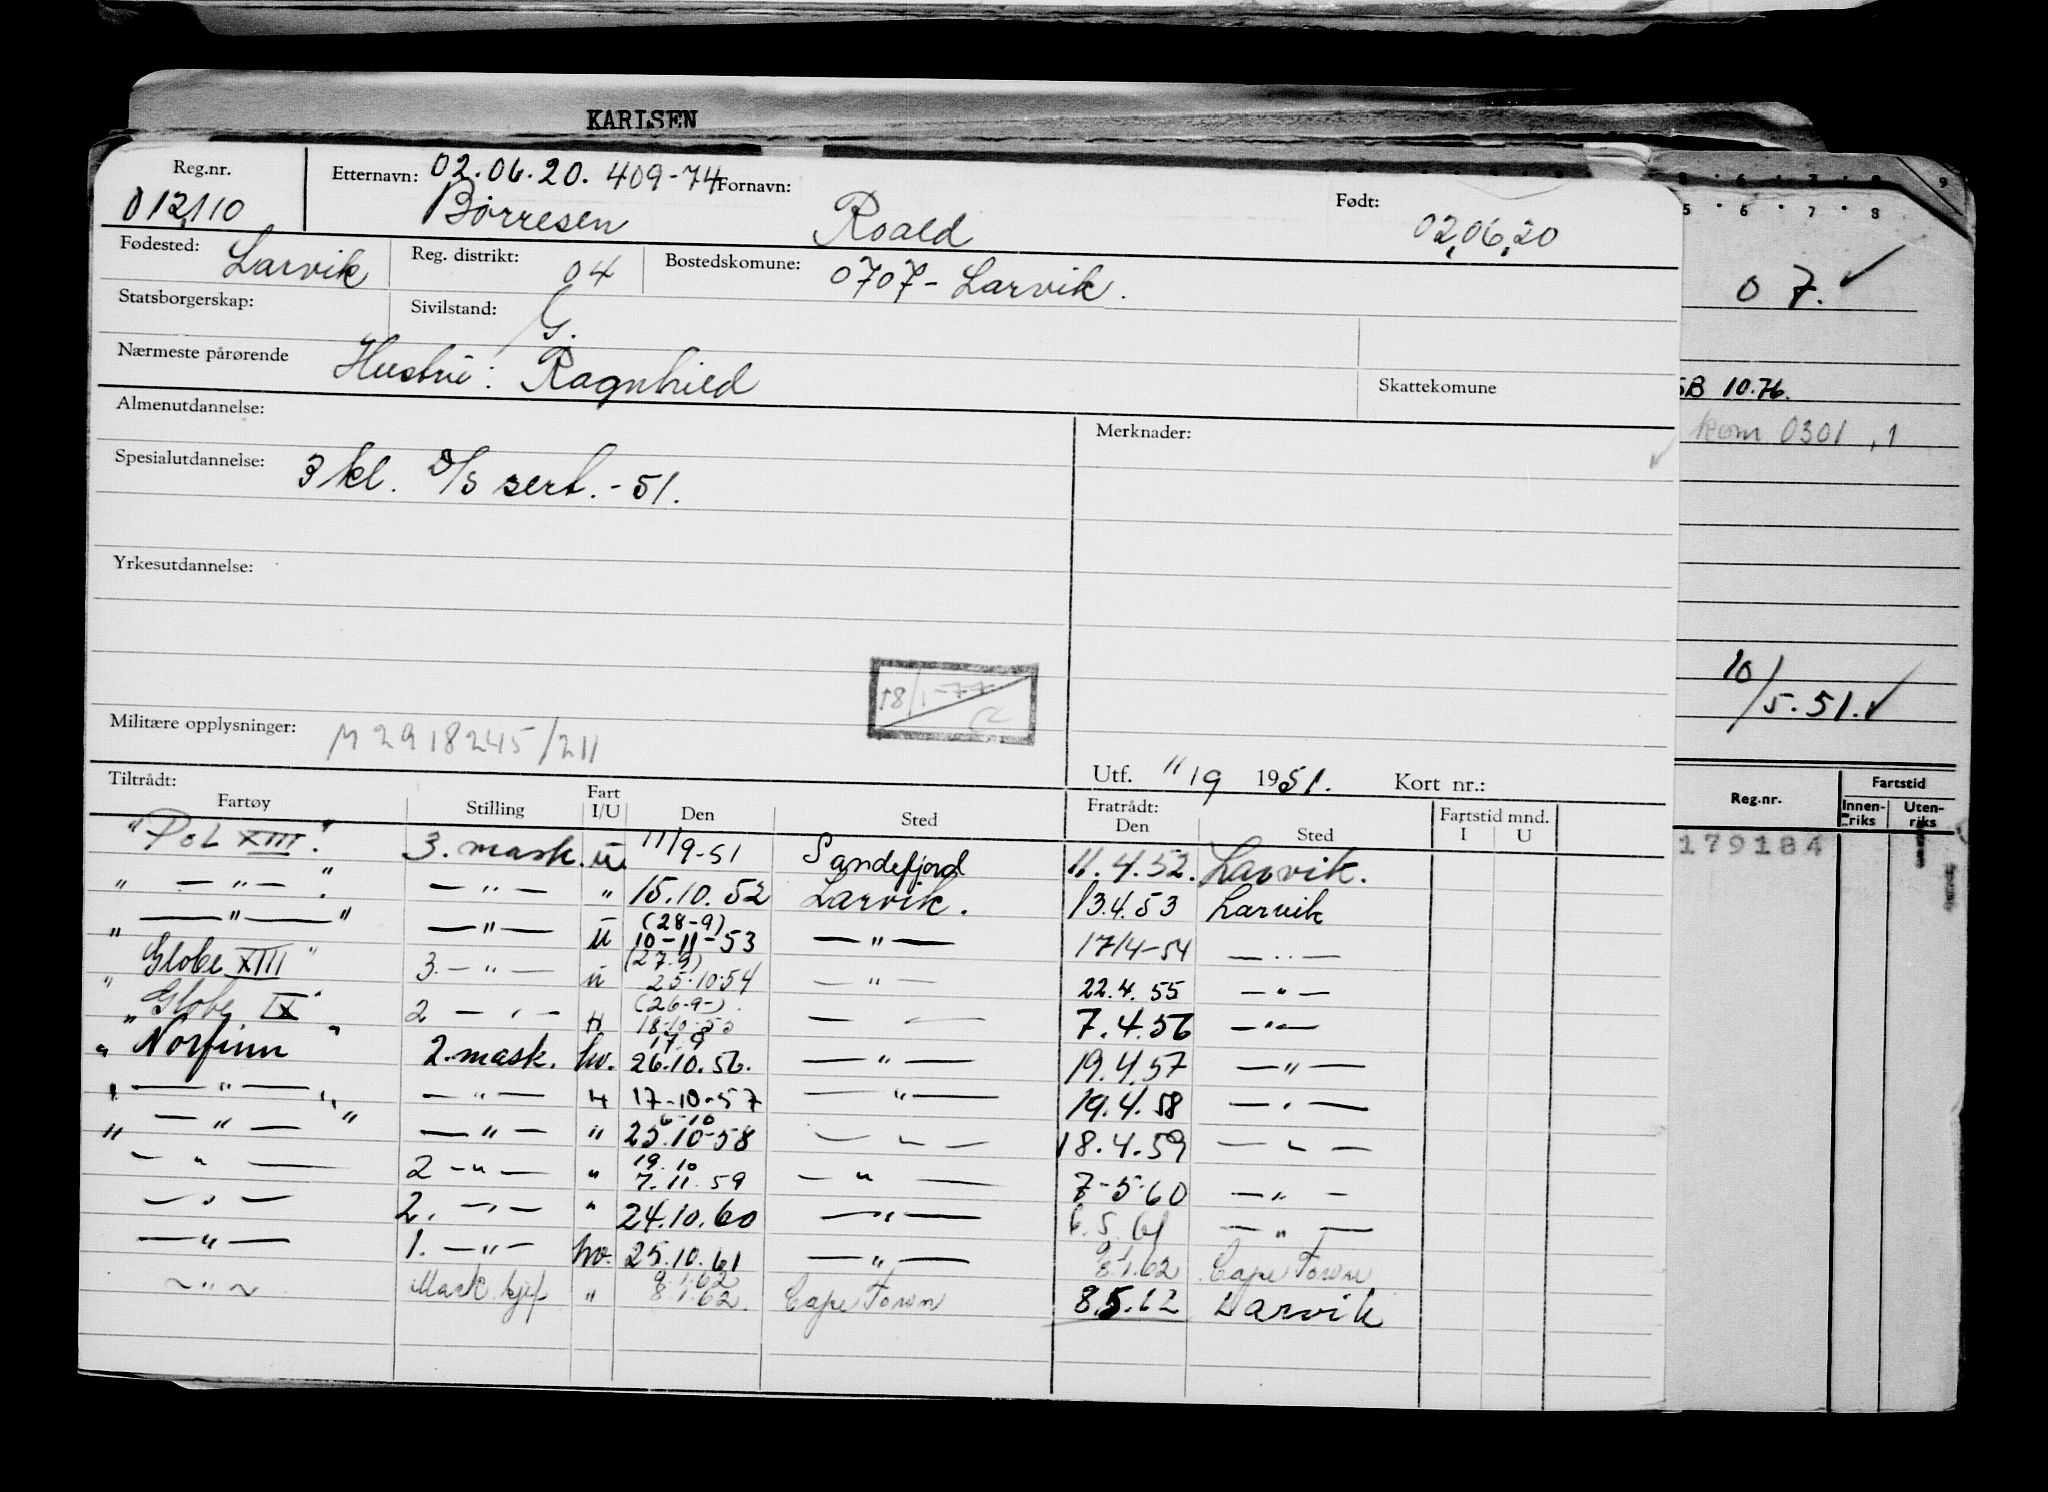 KARLSEN
Reg.nr. Etternavn: 02.06.20. 409-74 Fornavn: Født:
012110 Børresen Roald 02,06,20
Fødested: Larvik Reg. distrikt: 04 Bostedskomune: 0707- Larvik.
Statsborgerskap: Sivilstand: G.
Nærmeste pårørende Hustru: Ragnhild Skattekomune
Almenutdannelse: Merknader:
Spesialutdannelse: 3 kl. D/S sert. -51.
Yrkesutdannelse:
18/1-77
Militære opplysninger: M 2918245/211
Utf. 11/9 1951. Kort nr.:
Tiltrådt: Fratrådt: Fartstid mnd.
Fartøy Stilling Fart I/U Den Sted Den Sted I U
"Pol XIII". 3. mask. u. 11/9-51 Sandefjord 11.4.52. Larvik.
" — " — ". — " — " 15.10.52 Larvik. 13.4.53 Larvik
— " — " — " — u (28-9) 10-11-53 — " — 17/4-54 — " —
"Globe XIII" 3. — " — u (27.9) 25.10.54 — " — 22.4.55 — " —
"Globe IX" 2 — " — H (26-9-) 18.10.55 — — 7.4.56 — " —
"Norfinn" 2. mask. hv. 17.9 26.10.56. — " — 19.4.57 — " —
" — " — " — " — H 17-10-57 — " — 19.4.58 — " —
" — " — " — " — " 6-10 25.10-58 — " — 18.4.59 — " —
— " — 2 — " — " 19.10 7.11.59 — " — 7-5-60 — " —
— " — 2. — " — " 24.10.60 — " — 6.5.61 — " —
— " — 1. — " — hv. 25.10.61 — " — 8.1.62 Cape Town
— " — Mask. kjef " 8.1.62 8.1.62. Cape Town 8.5.62 Larvik
5 · 6 · 7 · 8 9
0 7. ✓
SB 10.76.
kom 0301, 1
10/5.51. ✓
Reg.nr. Fartstid
Innen-riks Uten-riks
179184